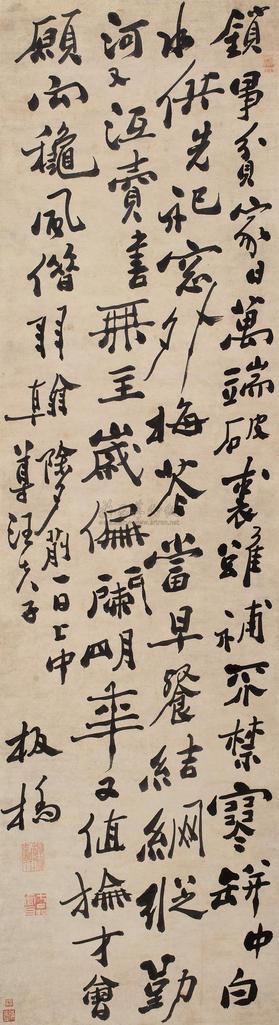 鎖事貧家日萬端破裘雖補不禁寒缾中白
水供先祀窓外梅花當早餐結網縱勤
河又冱賣書無主歲偏闌明年又值掄才會
願向穐風借羽翰 除夕前一日上中
尊汪夫子
板橋